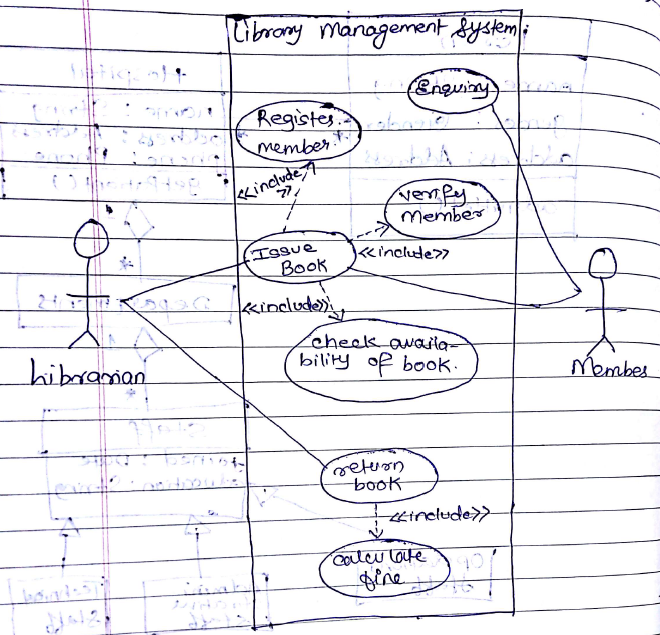 Library Management System:
Enquiry
Register
member.
<<include>>
verify
Member
Issue
Book
<<include>>
<<include>>
check availa-
bility of book.
Librarian
Member
return
book
<<include>>
calculate
fine